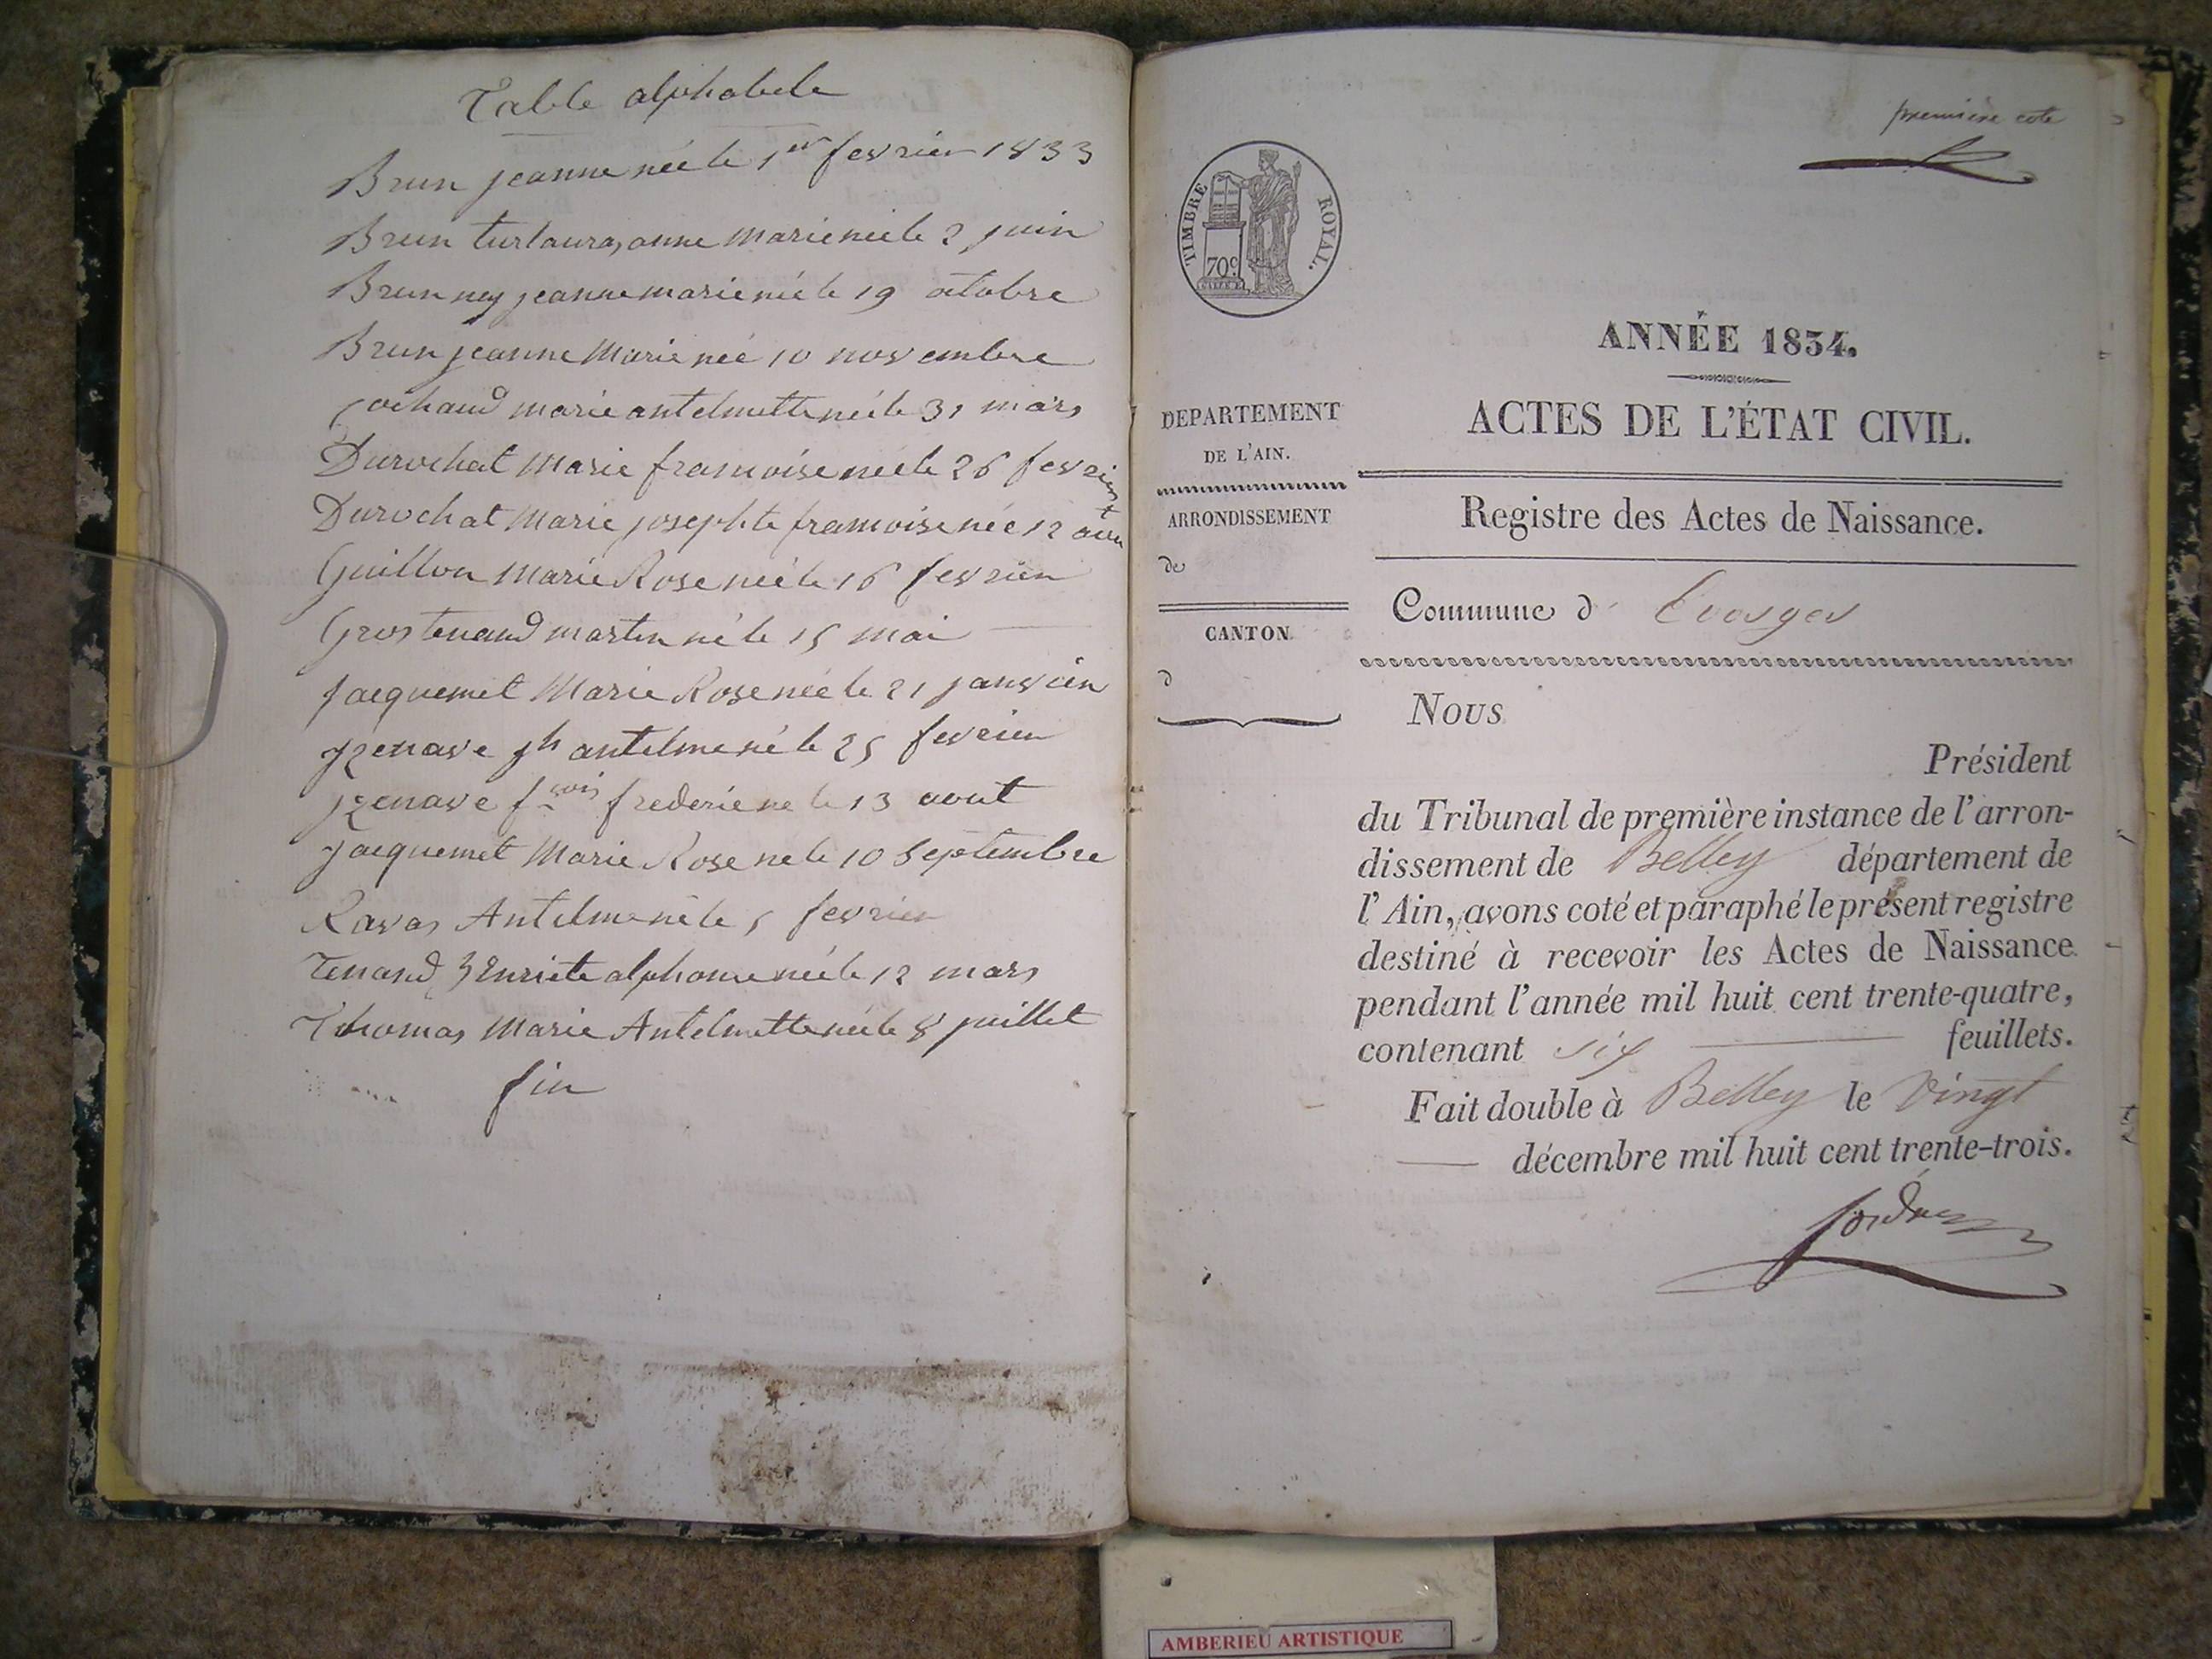 Table alphabete
Brun jeanne née le 1er fevrier 1833
Brun turlauras, anne marie née le 2 juin
Brun ney jeanne marie née le 19 octobre
Brun jeanne Marie née 10 novembre
Cochaud marie antelmette née le 31 mars
Durochat Marie francoise née le 26 fevrier
Durochat Marie josephte francoise née 12 aout
Guillon Marie Rose née le 16 fevrier
Gros tenand martin né le 15 mai
Jacquemet Marie Rose née le 21 janvier
jzenave jh antelme né le 25 fevrier
jzenave fcois frederic ne le 13 aout
Jacquemet Marie Rose ne le 10 Septembre
Ravas Antelme né le 5 fevrier
Tenand henriete alphonse née le 12 mars
Thomas Marie Antelmette née le 8 juillet
fin
première cote
TIMBRE ROYAL.
70c.
ANNÉE 1834.
ACTES DE L'ÉTAT CIVIL.
DEPARTEMENT
DE L'AIN.
ARRONDISSEMENT
de
CANTON
d
Registre des Actes de Naissance.
Commune d' Evosges
Nous
Président
du Tribunal de première instance de l'arron-
dissement de Belley département de
l'Ain, avons coté et paraphé le présent registre
destiné à recevoir les Actes de Naissance
pendant l'année mil huit cent trente-quatre,
contenant six feuillets.
Fait double à Belley le vingt
décembre mil huit cent trente-trois.
AMBERIEU ARTISTIQUE